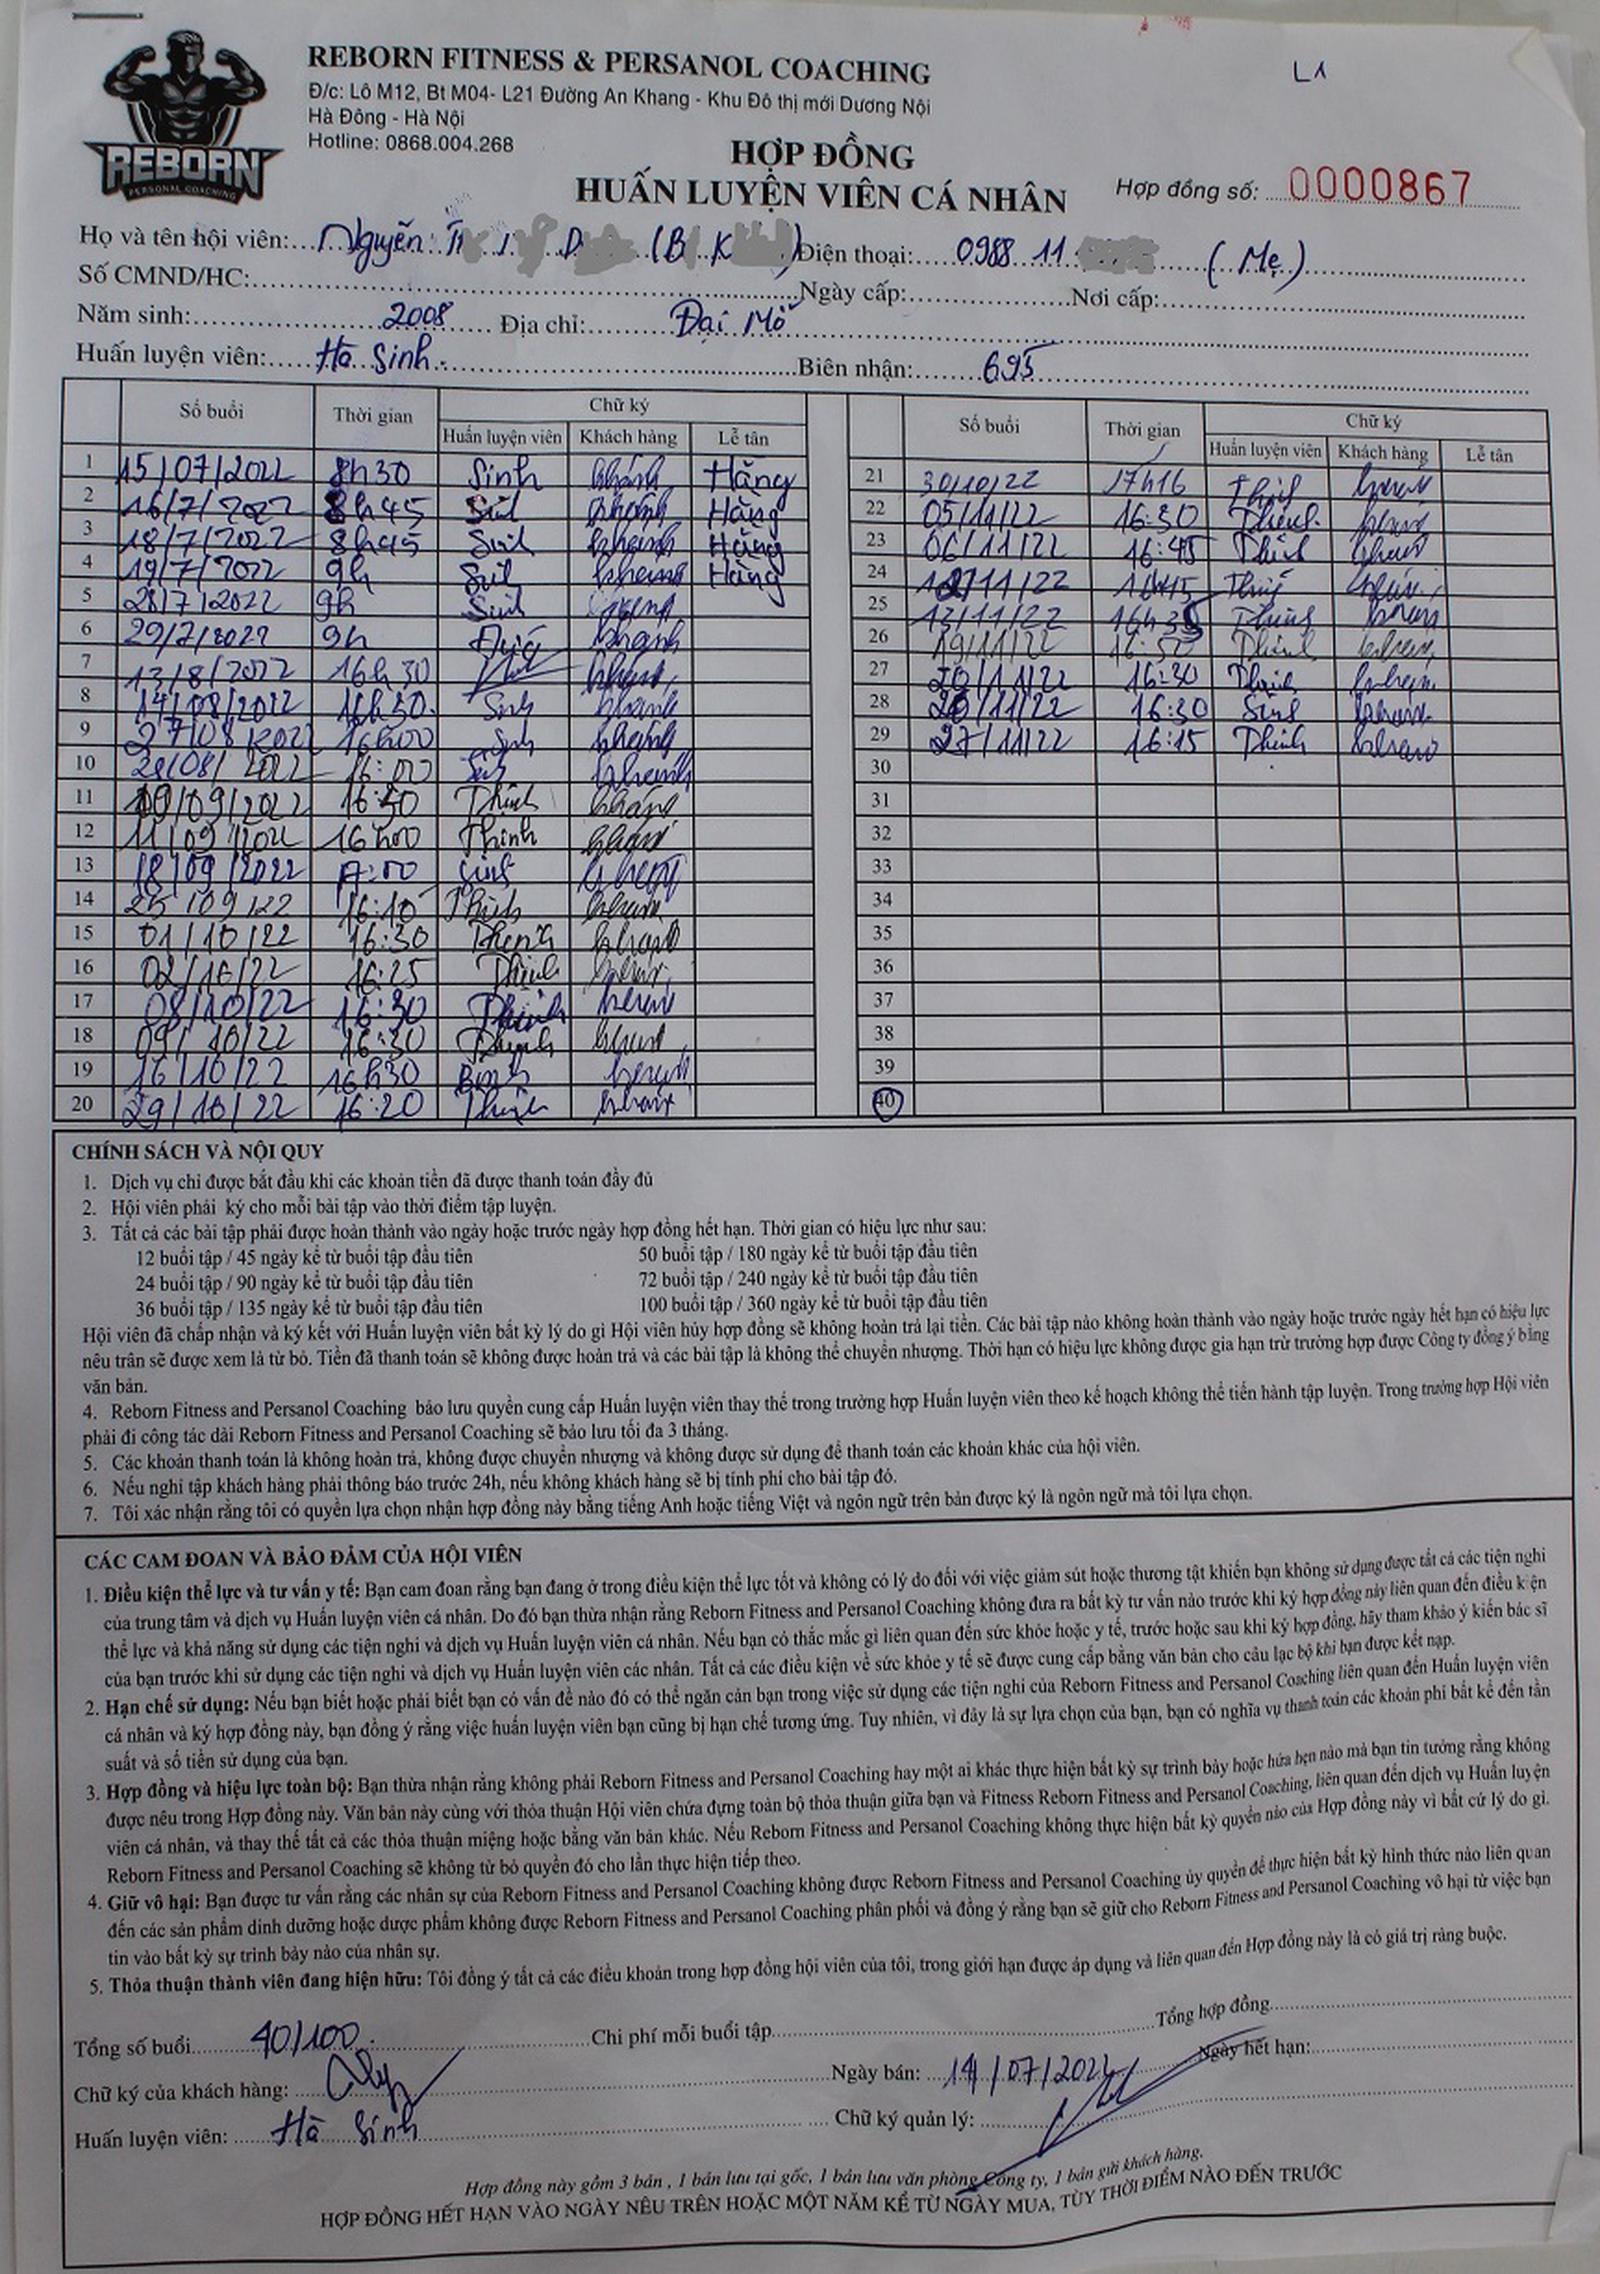 REBORN
PERSONAL COACHING
REBORN FITNESS & PERSANOL COACHING
Đ/c: Lô M12, Bt M04- L21 Đường An Khang - Khu Đô thị mới Dương Nội
Hà Đông - Hà Nội
Hotline: 0868.004.268
L1
HỢP ĐỒNG
HUẤN LUYỆN VIÊN CÁ NHÂN
Hợp đồng số: 0000867
Họ và tên hội viên: Nguyễn Điện thoại: 0988 11 (Mẹ)
Số CMND/HC: Ngày cấp: Nơi cấp:
Năm sinh: 2008 Địa chỉ: Đại Mỗ
Huấn luyện viên: Hà Sinh Biên nhận: 695
Số buổi Thời gian Chữ ký Số buổi Thời gian Chữ ký
Huấn luyện viên Khách hàng Lễ tân Huấn luyện viên Khách hàng Lễ tân
1 15/07/2022 8h30 Sinh Khánh Hằng 21 30/10/22 17h16
2 16/7/2022 8h45 Khánh Hằng 22 05/11/22 16:30
3 18/7/2022 8h45 Khanh Hằng 23 06/11/22 16:45
4 19/7/2022 9h Khanh Hằng 24
5 28/7/2022 9h 25 13/11/22
6 29/7/2022 9h Khanh 26 19/11/22
7 13/8/2022 16h30 27 20/11/22 16:30
8 14/08/2022 16h30 Sinh Khanh 28 16:30
9 27/08/2022 16h00 Sinh Khanh 29 27/11/22 16:15 Thinh
10 28/08/2022 16:00 Khanh 30
11 09/09/2022 16:30 Thinh 31
12 11/09/2022 16h00 Thinh 32
13 18/09/2022 33
14 25/09/22 16:10 34
15 01/10/22 16:30 35
16 02/10/22 16:25 36
17 08/10/22 16:30 37
18 09/10/22 16:30 38
19 16/10/22 16h30 39
20 29/10/22 16:20 40
CHÍNH SÁCH VÀ NỘI QUY
1. Dịch vụ chỉ được bắt đầu khi các khoản tiền đã được thanh toán đầy đủ
2. Hội viên phải ký cho mỗi bài tập vào thời điểm tập luyện.
3. Tất cả các bài tập phải được hoàn thành vào ngày hoặc trước ngày hợp đồng hết hạn. Thời gian có hiệu lực như sau:
12 buổi tập / 45 ngày kể từ buổi tập đầu tiên 50 buổi tập / 180 ngày kể từ buổi tập đầu tiên
24 buổi tập / 90 ngày kể từ buổi tập đầu tiên 72 buổi tập / 240 ngày kể từ buổi tập đầu tiên
36 buổi tập / 135 ngày kể từ buổi tập đầu tiên 100 buổi tập / 360 ngày kể từ buổi tập đầu tiên
Hội viên đã chấp nhận và ký kết với Huấn luyện viên bất kỳ lý do gì Hội viên hủy hợp đồng sẽ không hoàn trả lại tiền. Các bài tập nào không hoàn thành vào ngày hoặc trước ngày hết hạn có hiệu lực
nêu trân sẽ được xem là từ bỏ. Tiền đã thanh toán sẽ không được hoàn trả và các bài tập là không thể chuyển nhượng. Thời hạn có hiệu lực không được gia hạn trừ trường hợp được Công ty đồng ý bằng
văn bản.
4. Reborn Fitness and Persanol Coaching bảo lưu quyền cung cấp Huấn luyện viên thay thế trong trường hợp Huấn luyện viên theo kế hoạch không thể tiến hành tập luyện. Trong trường hợp Hội viên
phải đi công tác dài Reborn Fitness and Persanol Coaching sẽ bảo lưu tối đa 3 tháng.
5. Các khoản thanh toán là không hoàn trả, không được chuyển nhượng và không được sử dụng để thanh toán các khoản khác của hội viên.
6. Nếu nghỉ tập khách hàng phải thông báo trước 24h, nếu không khách hàng sẽ bị tính phí cho bài tập đó.
7. Tôi xác nhận rằng tôi có quyền lựa chọn nhận hợp đồng này bằng tiếng Anh hoặc tiếng Việt và ngôn ngữ trên bản được ký là ngôn ngữ mà tôi lựa chọn.
CÁC CAM ĐOAN VÀ BẢO ĐẢM CỦA HỘI VIÊN
1. Điều kiện thể lực và tư vấn y tế: Bạn cam đoan rằng bạn đang ở trong điều kiện thể lực tốt và không có lý do đối với việc giảm sút hoặc thương tật khiến bạn không sử dụng được tất cả các tiện nghi
của trung tâm và dịch vụ Huấn luyện viên cá nhân. Do đó bạn thừa nhận rằng Reborn Fitness and Persanol Coaching không đưa ra bất kỳ tư vấn nào trước khi ký hợp đồng này liên quan đến điều kiện
thể lực và khả năng sử dụng các tiện nghi và dịch vụ Huấn luyện viên cá nhân. Nếu bạn có thắc mắc gì liên quan đến sức khỏe hoặc y tế, trước hoặc sau khi ký hợp đồng, hãy tham khảo ý kiến bác sĩ
của bạn trước khi sử dụng các tiện nghi và dịch vụ Huấn luyện viên các nhân. Tất cả các điều kiện về sức khỏe y tế sẽ được cung cấp bằng văn bản cho câu lạc bộ khi bạn được kết nạp.
2. Hạn chế sử dụng: Nếu bạn biết hoặc phải biết bạn có vấn đề nào đó có thể ngăn cản bạn trong việc sử dụng các tiện nghi của Reborn Fitness and Persanol Coaching liên quan đến Huấn luyện viên
cá nhân và ký hợp đồng này, bạn đồng ý rằng việc huấn luyện viên bạn cũng bị hạn chế tương ứng. Tuy nhiên, vì đây là sự lựa chọn của bạn, bạn có nghĩa vụ thanh toán các khoản phí bất kể đến tần
suất và số tiền sử dụng của bạn.
3. Hợp đồng và hiệu lực toàn bộ: Bạn thừa nhận rằng không phải Reborn Fitness and Persanol Coaching hay một ai khác thực hiện bất kỳ sự trình bày hoặc hứa hẹn nào mà bạn tin tưởng rằng không
được nêu trong Hợp đồng này. Văn bản này cùng với thỏa thuận Hội viên chứa đựng toàn bộ thỏa thuận giữa bạn và Fitness Reborn Fitness and Persanol Coaching, liên quan đến dịch vụ Huấn luyện
viên cá nhân, và thay thế tất cả các thỏa thuận miệng hoặc bằng văn bản khác. Nếu Reborn Fitness and Persanol Coaching không thực hiện bất kỳ quyền nào của Hợp đồng này vì bất cứ lý do gì.
Reborn Fitness and Persanol Coaching sẽ không từ bỏ quyền đó cho lần thực hiện tiếp theo.
4. Giữ vô hại: Bạn được tư vấn rằng các nhân sự của Reborn Fitness and Persanol Coaching không được Reborn Fitness and Persanol Coaching ủy quyền để thực hiện bất kỳ hình thức nào liên quan
đến các sản phẩm dinh dưỡng hoặc dược phẩm không được Reborn Fitness and Persanol Coaching phân phối và đồng ý rằng bạn sẽ giữ cho Reborn Fitness and Persanol Coaching vô hại từ việc bạn
tin vào bất kỳ sự trình bày nào của nhân sự.
5. Thỏa thuận thành viên đang hiện hữu: Tôi đồng ý tất cả các điều khoản trong hợp đồng hội viên của tôi, trong giới hạn được áp dụng và liên quan đến Hợp đồng này là có giá trị ràng buộc.
Tổng số buổi 40/100 Chi phí mỗi buổi tập Tổng hợp đồng
Chữ ký của khách hàng: Ngày bán: 14/07/2022 Ngày hết hạn:
Huấn luyện viên: Hà Sinh Chữ ký quản lý:
Hợp đồng này gồm 3 bản , 1 bản lưu tại gốc, 1 bản lưu văn phòng Công ty, 1 bản gửi khách hàng.
HỢP ĐỒNG HẾT HẠN VÀO NGÀY NÊU TRÊN HOẶC MỘT NĂM KỂ TỪ NGÀY MUA, TÙY THỜI ĐIỂM NÀO ĐẾN TRƯỚC